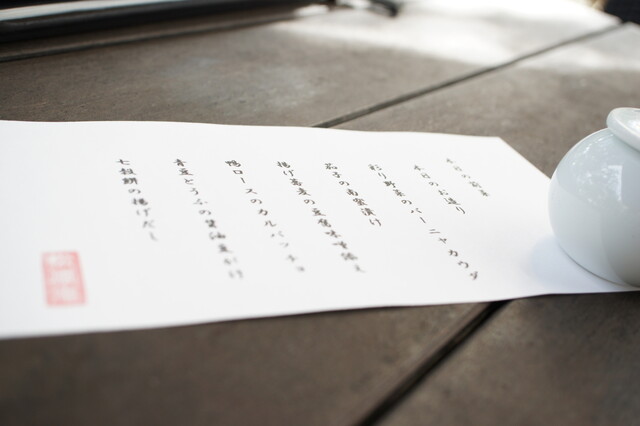 本日の
本日のお造り
彩り野菜のバーニャカウダ
茄子の南蛮漬け
揚げ蕎麦の味噌添え
鴨ロースのカルパッチョ
青豆とうふの醤油豆がけ
七穀餅の揚げだし